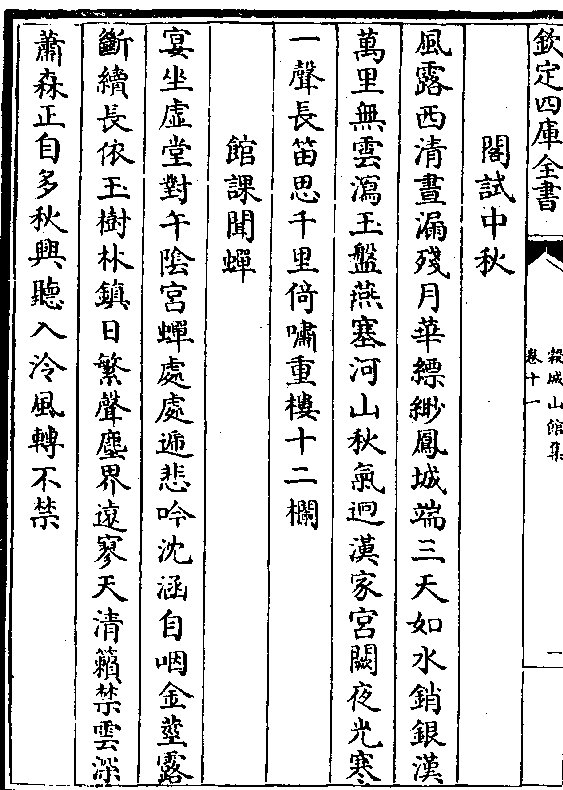 欽定四庫全書
穀城山館集
卷十一
一
閣試中秋
風露西清晝漏殘月華縹緲鳳城端三天如水銷銀漢
萬里無雲瀉玉盤燕塞河山秋氣逈漢家宮闕夜光寒
一聲長笛思千里倚嘯重樓十二欄
館課聞蟬
宴坐虛堂對午陰宮蟬處處遞悲吟沈涵自咽金莖露
斷續長依玉樹林鎮日繁聲塵界遠寥天清籟禁雲深
蕭森正自多秋興聽入泠風轉不禁